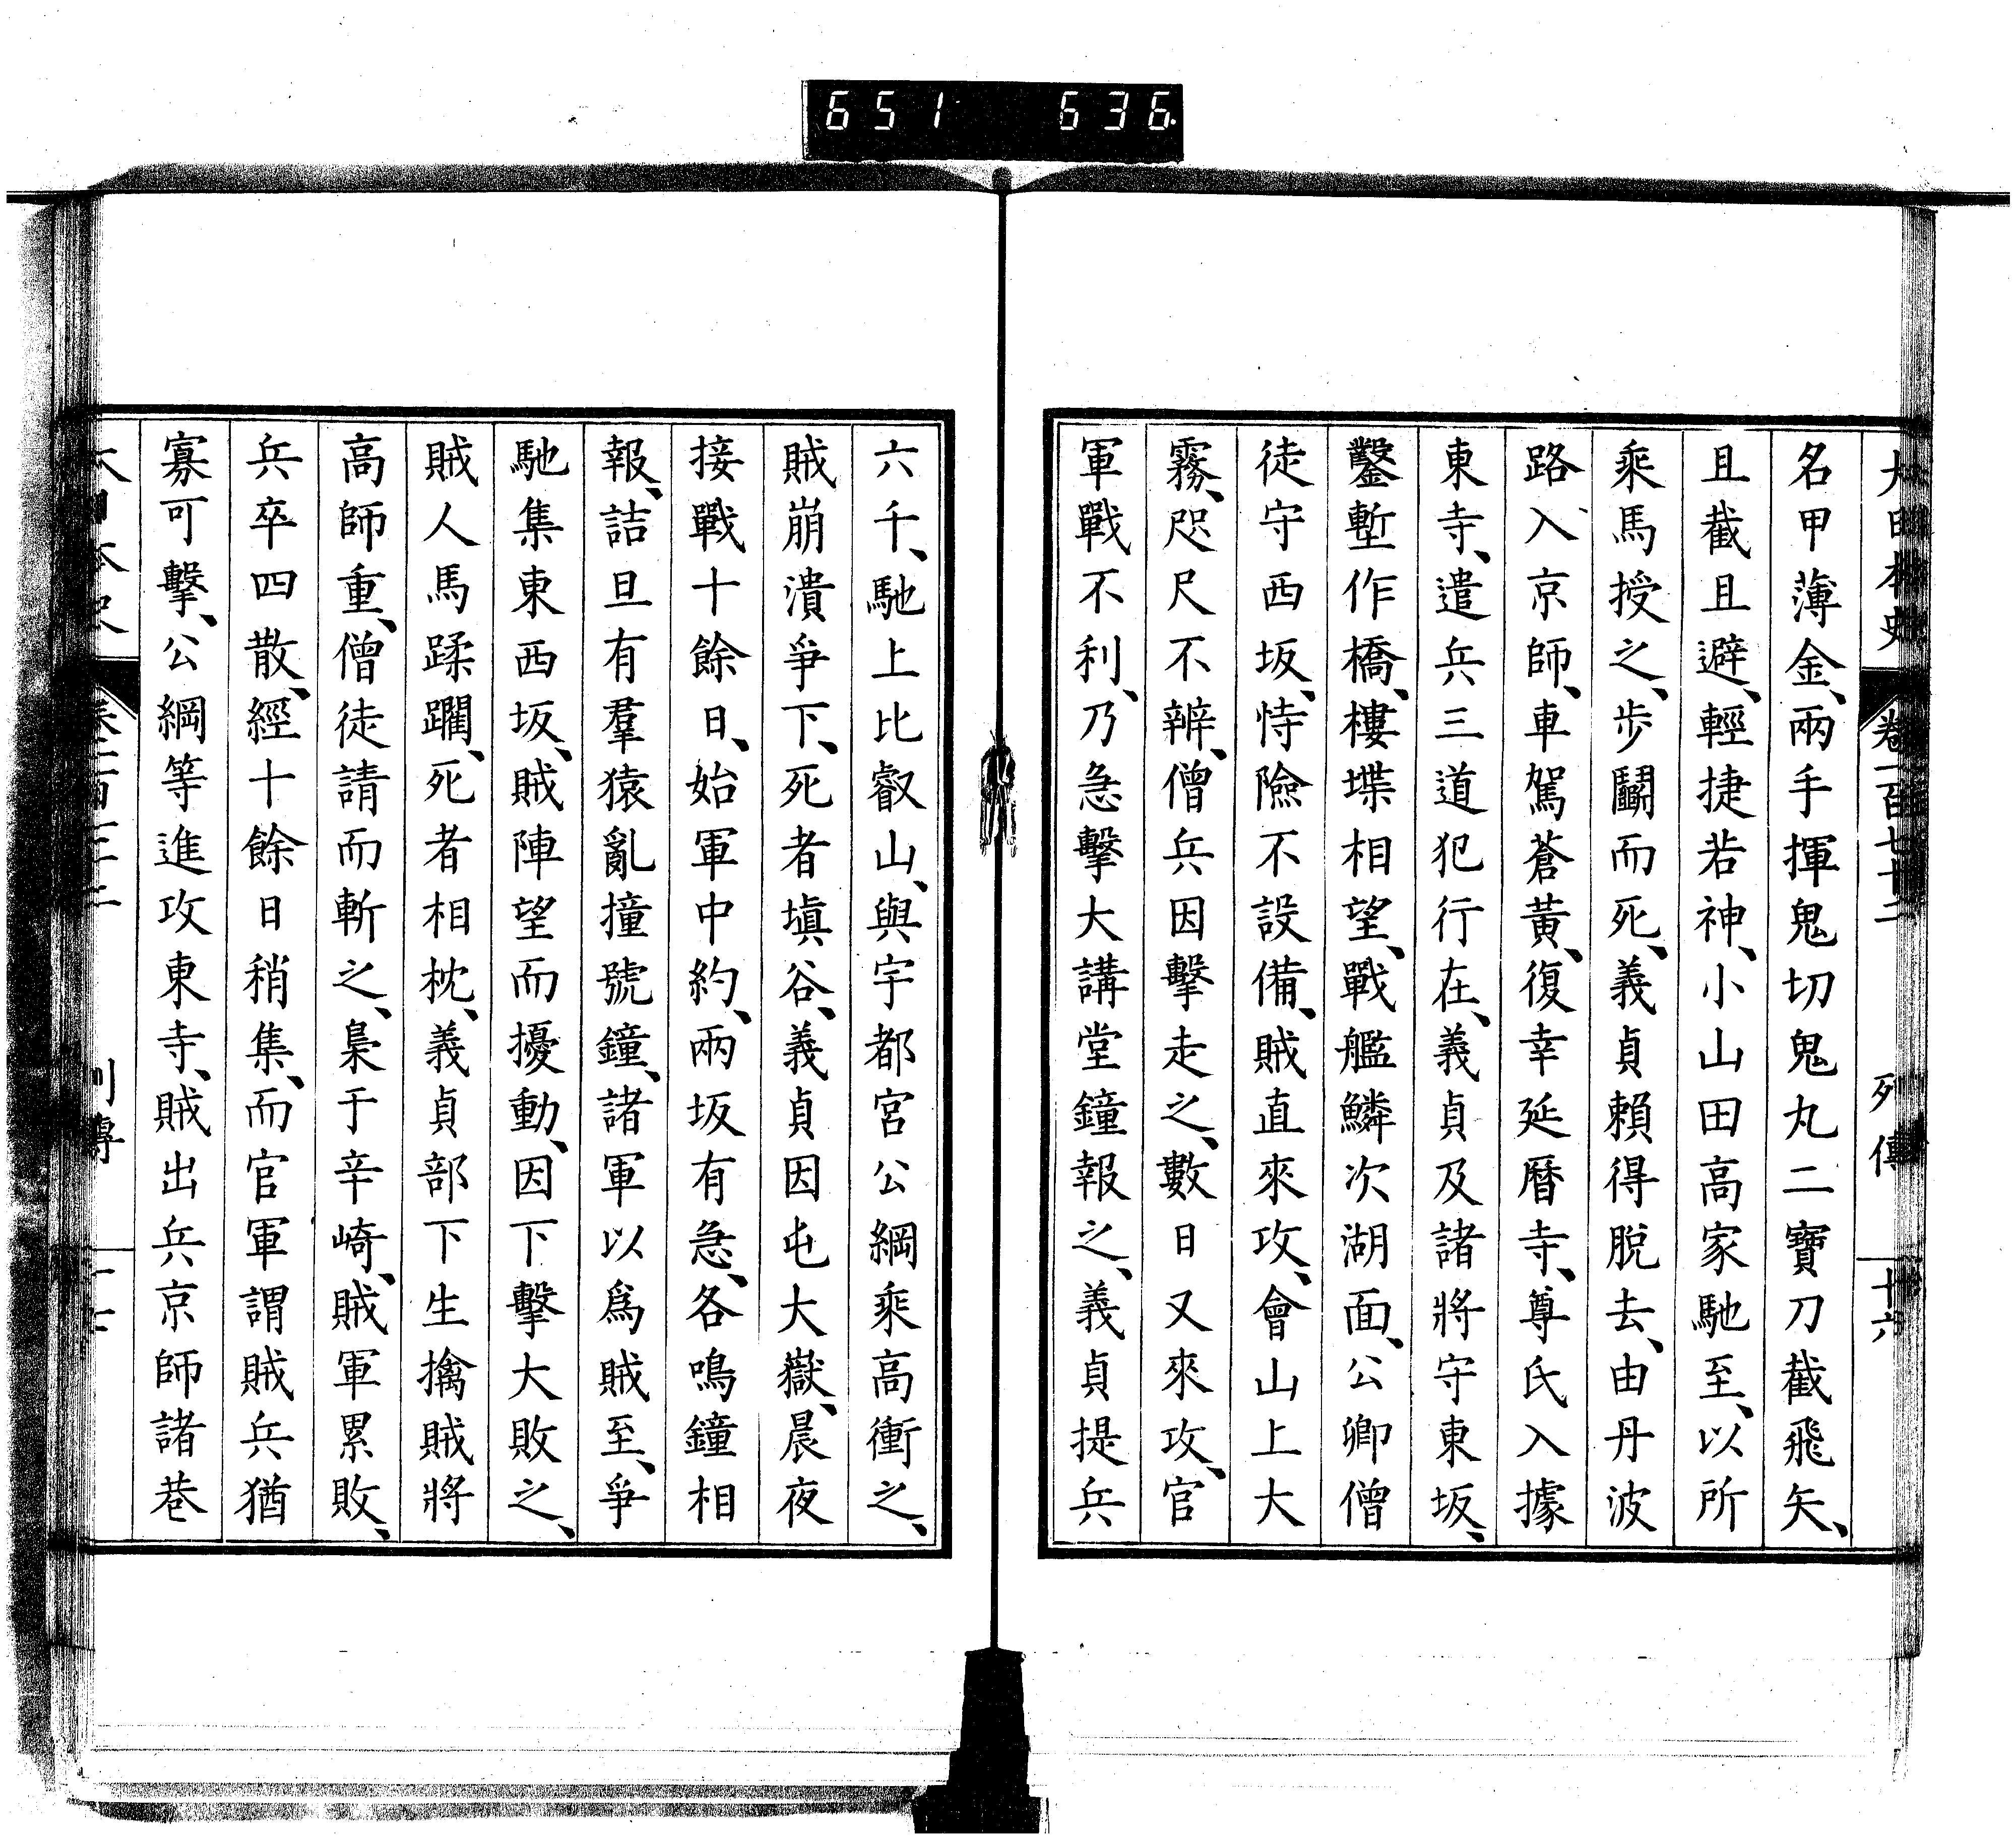 651 636
大日本史 卷一百七十二 列傳 十六
名甲薄金、兩手揮鬼切鬼丸二寶刀截飛矢、
且截且避、輕捷若神、小山田高家馳至、以所
乘馬授之、步鬭而死、義貞賴得脫去、由丹波
路入京師、車駕蒼黃、復幸延曆寺、尊氏入據
東寺、遣兵三道犯行在、義貞及諸將守東坂、
鑿塹作橋、樓堞相望、戰艦鱗次湖面、公卿僧
徒守西坂、恃險不設備、賊直來攻、會山上大
霧、咫尺不辨、僧兵因擊走之、數日又來攻、官
軍戰不利、乃急擊大講堂鐘報之、義貞提兵
六千、馳上比叡山、與宇都宮公綱乘高衝之、
賊崩潰爭下、死者塡谷、義貞因屯大嶽、晨夜
接戰十餘日、始軍中約、兩坂有急、各鳴鐘相
報、詰旦有羣猿亂撞號鐘、諸軍以爲賊至、爭
馳集東西坂、賊陣望而擾動、因下擊大敗之、
賊人馬蹂躙、死者相枕、義貞部下生擒賊將
高師重、僧徒請而斬之、梟于辛崎、賊軍累敗、
兵卒四散、經十餘日稍集、而官軍謂賊兵猶
寡可擊、公綱等進攻東寺、賊出兵京師諸巷
大日本史 列傳